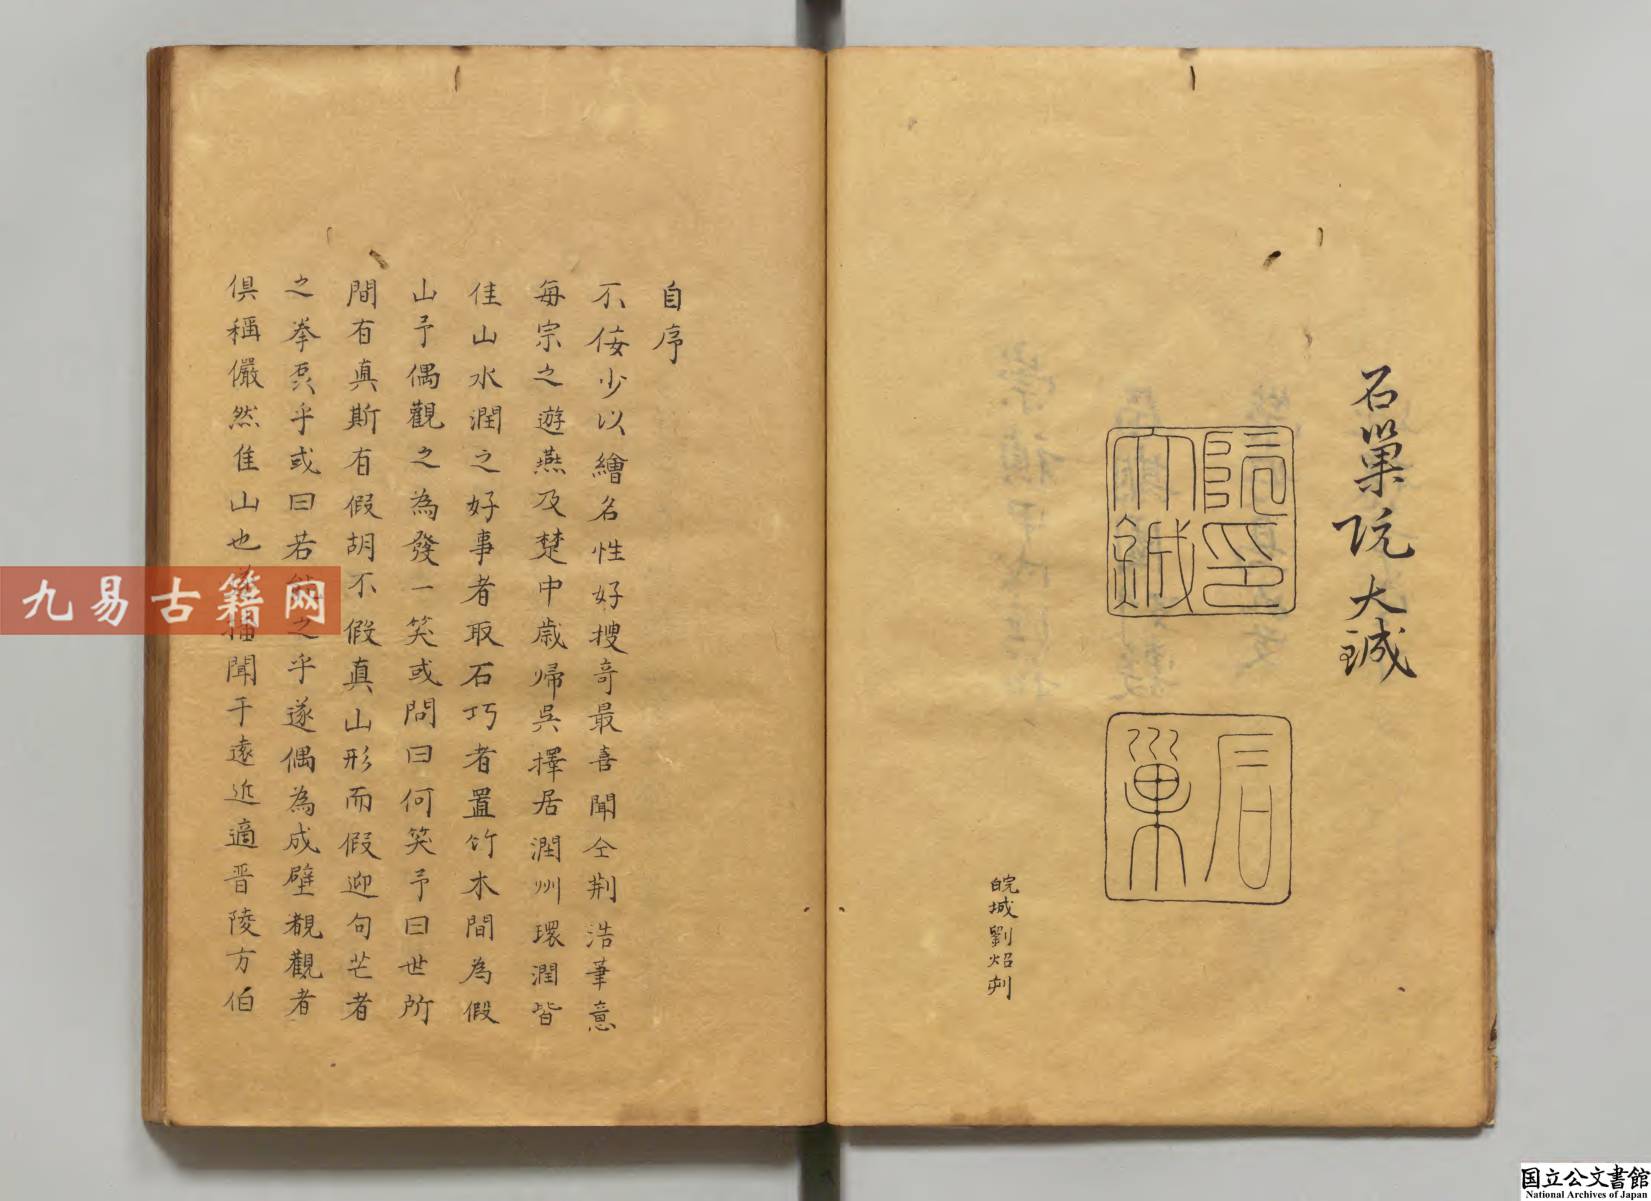 石巢阮大鋮
阮印大鋮
石巢
皖城劉炤刻
自序
不佞少以繪名性好搜奇最喜聞仝荆浩筆意
每宗之遊燕及楚中歲歸吳擇居潤州環潤皆
佳山水潤之好事者取石巧者置竹木間為假
山予偶觀之為發一笑或問曰何笑予曰世所
聞有真斯有假胡不假真山形而假迎句芒者
之拳磊乎或曰若能之乎遂偶為成壁覩觀者
俱稱儼然佳山也播聞于遠近適晋陵方伯
九易古籍网
国立公文書館
National Archives of Japan